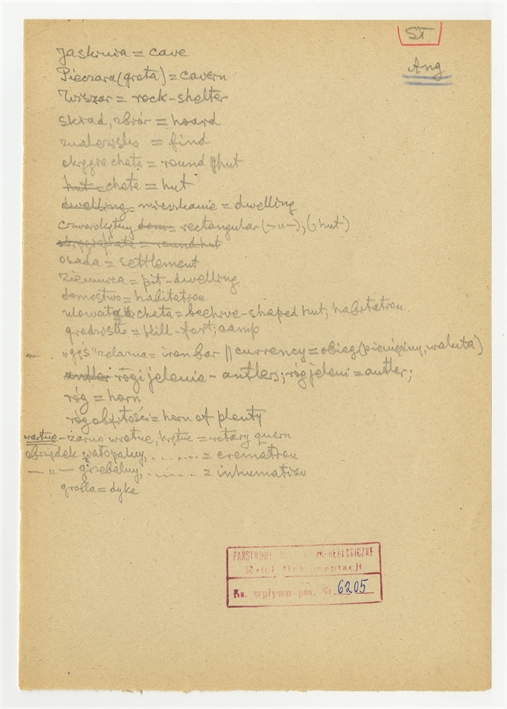 ST
Ang
Jaskinia = cave
Pieczara (grota) = cavern
= rock-shelter
skład, zbiór = hoard
znalezisko = find
okrągła chata = round hut
hut = chata = hut
dwelling = mieszkanie = dwelling
czworokątny dom = rectangular (-"-), (hut)
okrągła chata = round hut
osada = settlement
ziemianka = pit-dwelling
domostwo = habitation
ulowata chata = beehive-shaped hut, habitation
grodzisko = hill-fort, camp
żelazna = iron bar || currency = obieg (pieniężny, waluta)
antler rogi jelenia - antlers; róg jeleni = antler;
róg = horn
róg obfitości = horn of plenty
żarno = rotary quern
obrządek ciałopalny, ........ = cremation
- " - grzebalny, ........ = inhumation
grobla = dyke
PAŃSTWOWE MUZEUM ARCHEOLOGICZNE
Dział Dokumentacji
Ks. wpływu poz. Nr. 6205